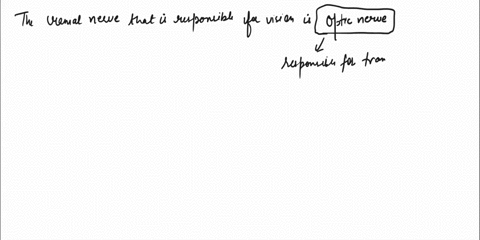 The cranial nerve that is responsible for vision is optic nerve
responsible for tran